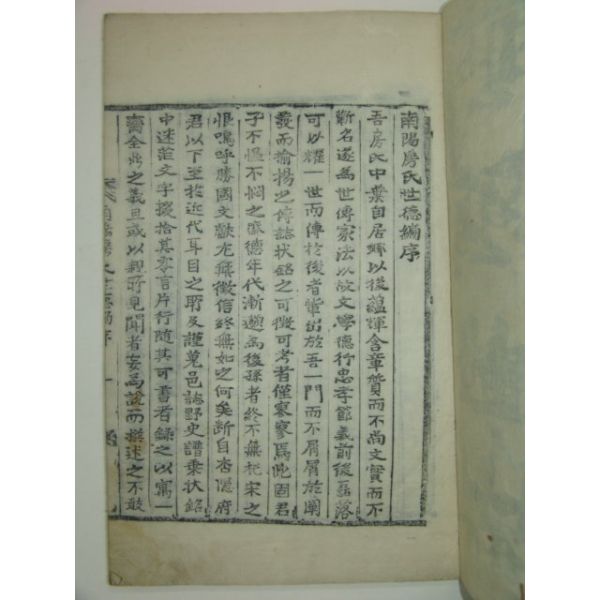 南陽房氏世德編序
吾房氏中葉自居蔚以後蘊輝含章質而不尚文實而不
靳名遂為世傳家法以故文學德行忠孝節義前後磊落
可以耀一世而傳於後者輩出於吾一門而不屑屑於闡
發而揄揚之傳誌狀銘之可徵可考者僅寥寥焉此固君
子不慍不悶之麻德年代漸邈為後孫者終不無杞宋之
恨嗚呼勝國文獻尤無徵信終無如之何矣斷自杏隱府
君以下至於近代耳目之所及謹蒐邑誌野史譜乗狀銘
中迷茫文字掇拾其零言片行随其可書者錄之以寓一
臠全鼎之義且或以親所見聞者妄為說而撰述之不敢
南陽房氏世德編序 一